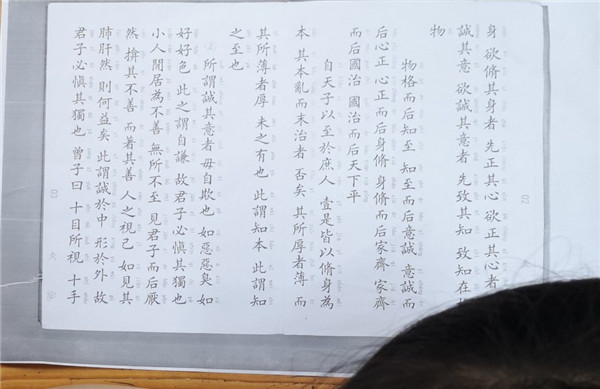 身 欲脩其身者 先正其心 欲正其心者
誠其意 欲誠其意者 先致其知 致知在
物
物格而后知至 知至而后意誠 意誠而
后心正 心正而后身脩 身脩而后家齊 家齊
而后國治 國治而后天下平
自天子以至於庶人 壹是皆以脩身為
本 其本亂而末治者 否矣 其所厚者薄 而
其所薄者厚 未之有也 此謂知本 此謂知
之至也
所謂誠其意者 毋自欺也 如惡惡臭 如
好好色 此之謂自謙 故君子必慎其獨也
小人閒居為不善 無所不至 見君子而后厭
然 揜其不善 而著其善 人之視己 如見其
肺肝然 則何益矣 此謂誠於中 形於外 故
君子必慎其獨也 曾子曰 十目所視 十手